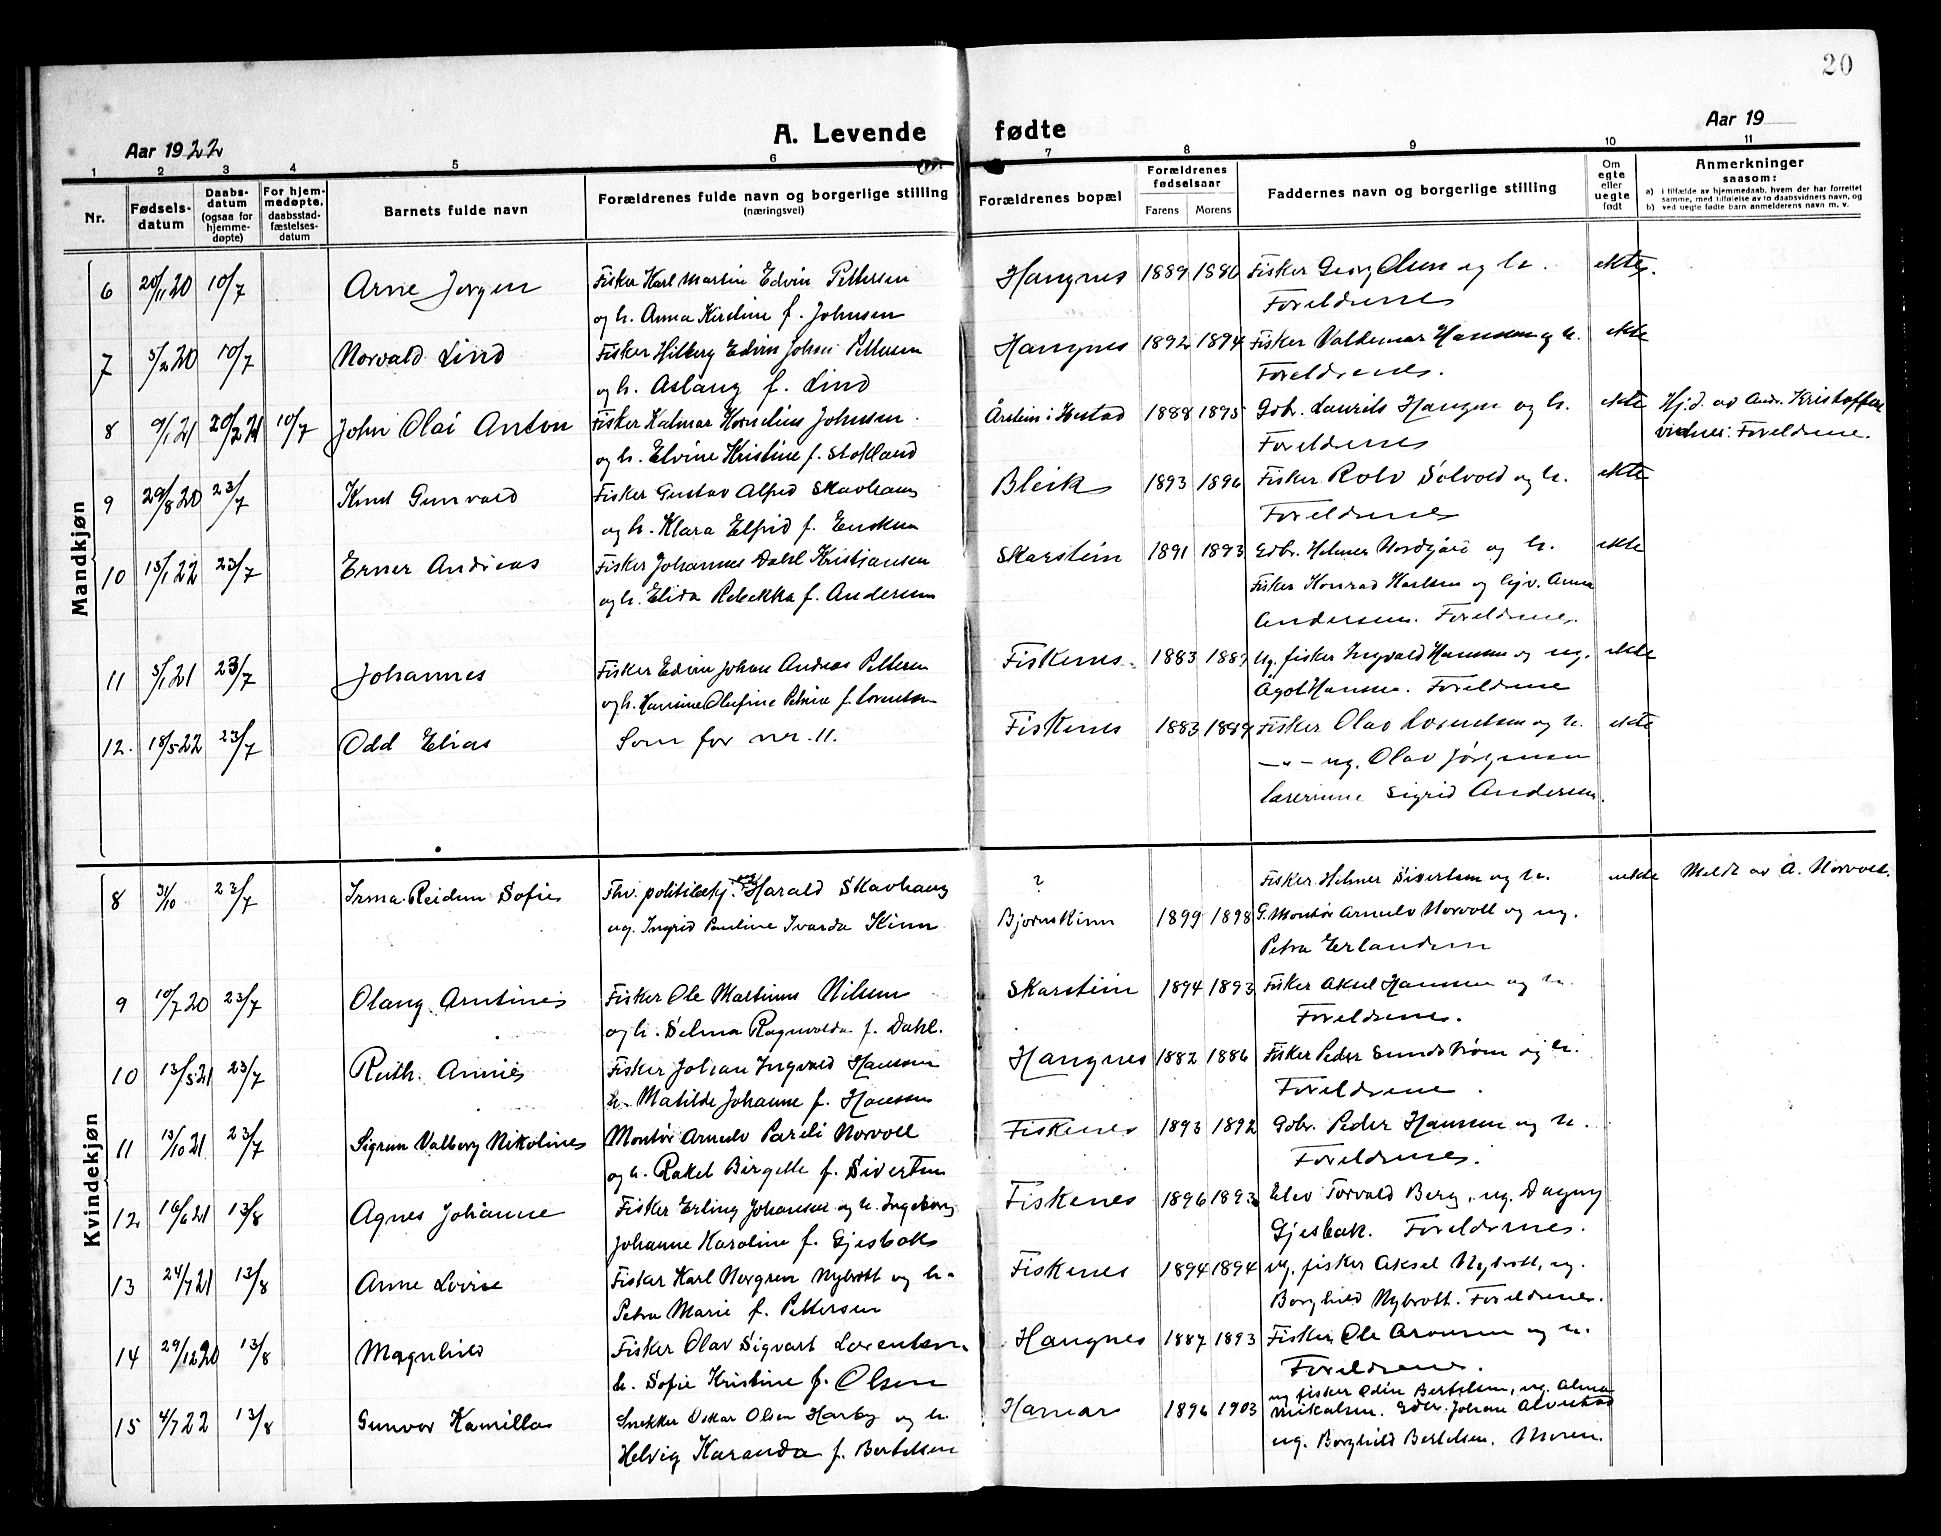 20
Aar 1922
A. Levende fødte
Aar 19
1 2 3 4 5 6 7 8 9 10 11
Nr.
Fødsels-
datum
Daabs-
datum
(ogsaa for
hjemme-
døpte)
For hjem-
medøpte,
daabsstad-
fæstelses-
datum
Barnets fulde navn
Forældrenes fulde navn og borgerlige stilling
(næringsvei)
Forældrenes bopæl
Forældrenes
fødselsaar
Farens Morens
Faddernes navn og borgerlige stilling
Om
egte
eller
uegte
født
Anmerkninger
saasom:
a) i tilfælde av hjemmedaab, hvem der har forrettet
samme, med tilføielse av to daabsvidners navn, og
b) ved uegte fødte barn anmelderens navn m. v.
Mandkjøn
6 20/11 20 10/7 Arne Jørgen Fisker Karl Martin Edvin Pettersen Haugnes 1889 1886 Fisker Georg Olsen og h. ekte.
og h. Anna Kirstine f. Johnsen Foreldrene
7 5/2 20 10/7 Norvald Lind Fisker Hilberg Edvin Johan Pettersen Haugnes 1892 1894 Fisker Valdemar Hansen og h. ekte
og h. Aslaug f. Lind Foreldrene.
8 9/1 21 20/2 21 10/7 John Olai Anton Fisker Kalmar Kornelius Johnsen Årstein i Ibestad 1888 1895 Gdbr. Laurits Haugen og h. ekte Hj.d. av Andr. Kristoffersen
og h. Elvine Kristine f. Stokland Foreldrene vidner: Foreldrene.
9 29/8 20 23/7 Knut Gunvald Fisker Gustav Alfred Skavhaug Bleik 1893 1896 Fisker Rolv Solvold og h. ekte
og h. Klara Elfrid f. Enoksen Foreldrene
10 15/1 22 23/7 Erner Andreas Fisker Johannes Dahl Kristiansen Skarstein 1891 1893 Gdbr. Helmer Nordgård og h. ekte
og h. Elida Rebekka f. Andersen Fisker Konrad Karlsen og hjv. Anna
Andersen. Foreldrene.
11 5/1 21 23/7 Johannes Fisker Edvin Johan Andreas Pettersen Fiskenes 1883 1889 Ug. fisker Ingvald Hansen og ug. ekte
og h. Hansine Olufine Petrine f. Lorentsen Ågot Hansen. Foreldrene
12. 18/5 22 23/7 Odd Elias Som for nr. 11. Fiskenes 1883 1889 Fisker Olav Lorentsen og h. ekte
— " — ug. Olav Jørgensen
lærerinne Sigrid Andersen.
Kvindekjøn
8 31/10 23/7 Irma Reidun Sofie Fhv. politibetj. Harald Skavhaug ? Fisker Helmer Sivertsen og h. uekte Meldt av A. Norvoll.
ug. Ingrid Pauline Ivarda Kinn Bjørnskinn 1899 1898 G. Montør Arnulv Norvoll og ug.
Petra Erlandsen
9 10/7 20 23/7 Olaug Arntine Fisker Ole Martinus Nilsen Skarstein 1894 1893 Fisker Aksel Hansen og h.
og h. Selma Ragnvalda f. Dahl. Foreldrene.
10 13/5 21 23/7 Ruth Annie Fisker Johan Ingvald Hansen Haugnes 1882 1886 Fisker Peder Sundstrøm og h.
h. Matilde Johanne f. Hansen Foreldrene.
11 13/10 21 23/7 Sigrun Valborg Nikoline Montør Arnulv Pareli Norvoll Fiskenes 1893 1892 Gdbr. Peder Hansen og h.
og h. Rakel Birgitte f. Sivertsen Foreldrene.
12 16/6 21 13/8 Agnes Johanne Fisker Erling Johansen og h. Ingeborg Fiskenes 1896 1893 Elev Torvald Berg, ug. Dagny
Johanne Karoline f. Gjesbak Gjesbak. Foreldrene.
13 24/7 21 13/8 Anne Lovise Fisker Karl Norgren Nybrott og h. Fiskenes 1894 1894 ug. fisker Aksel Nybrott, ug.
Petra Marie f. Pettersen Borghild Nybrott. Foreldrene.
14 29/12 20 13/8 Magnhild Fisker Olav Sigvart Lorentsen Haugnes 1887 1893 Fisker Ole Aronsen og h.
h. Sofie Kristine f. Olsen Foreldrene.
15 4/7 22 13/8 Gunvor Kamilla Snekker Oskar Olsen Harby og h. Hamar 1896 1903 ug fisker Odin Bertelsen, ug. Alma
Helvig Karanda f. Bertelsen Mikalsen. Gdbr. Johan Alvestad
ug. Borghild Bertelsen. Moren.